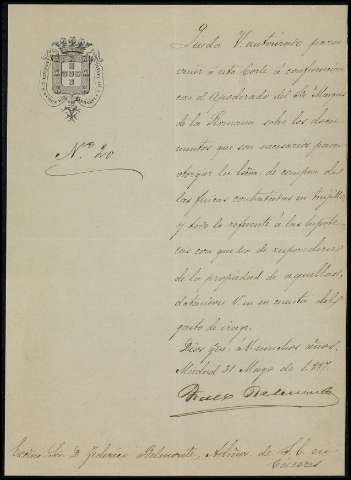 Nº 20
Queda V. autorizado para
venir á esta Corte á conferenciar
con el Apoderado del Sr Marques
de la Romana sobre los docu
mentos que son necesarios para
otorgar la Esra. de compra de
las fincas contratadas en Trujillo
y todo lo referente á las hipote
cas con que ha de responderse
de la propiedad de aquellas,
datandose V. en cuenta del
gasto de viage.
Dios gue. á V. muchos años.
Madrid 31 Mayo de 1.887.
Belmonte
Sor. D. Federico Belmonte, Admor. de S. E. en
Caceres